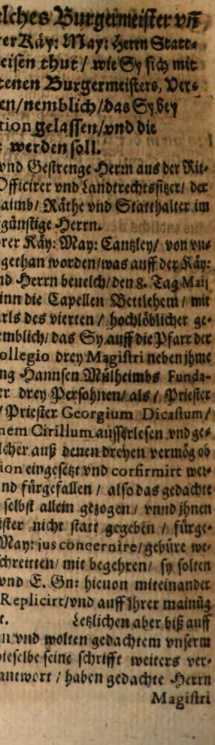 elches Burgermeister vñ
rer Käy: May: Herrn Statt-
eisen thut / wie Sy sich mit
tenen Burgermeisters, Ver-
en/nemblich/das Sy bey
tion gelassen/vnd die
werden soll.
vnd Gestrenge Herrn aus der Rit-
Officirer vnd Landtrechtssitzer/ der
aimb/ Räthe vnd Statthalter im
günstige Herrn.
rer Käy: May: Cantzley/ von vns
gethan worden/was auff der Käy:
nd Herrn beuelch/den 8. Tag Maij
inn die Capellen Bettlehem / mit
rls des vierten / hochlöblicher ge-
emblich/ das Sy auff die Pfarr der
ollegio drey Magistri neben jhme
ng Hannsen Mülheimbs Funda-
er drey Persohnen/ als / Priester
/ Priester Georgium Dicastum/
nem Cirillum außerlesen vnd ges-
lcher auß denen dreyen vermög ob
ion eingesetzt vnd corfirmirt wer-
nd fürgefallen / also das gedachte
selbst allein gezogen / vnnd jhnen
ister nicht statt gegeben / fürge-
May: jus concernire/gebüre we-
chreitten / mit begehren/ sy solten
vnd E. Gn: hieuon miteinander
Replicirt/vnd auff Jhrer mainūg
t. Letzlichen aber biß auff
n vnd wolten gedachtem vnserm
ieselbe seine schrifft weiters ver-
antwort / haben gedachte Herrn
Magistri